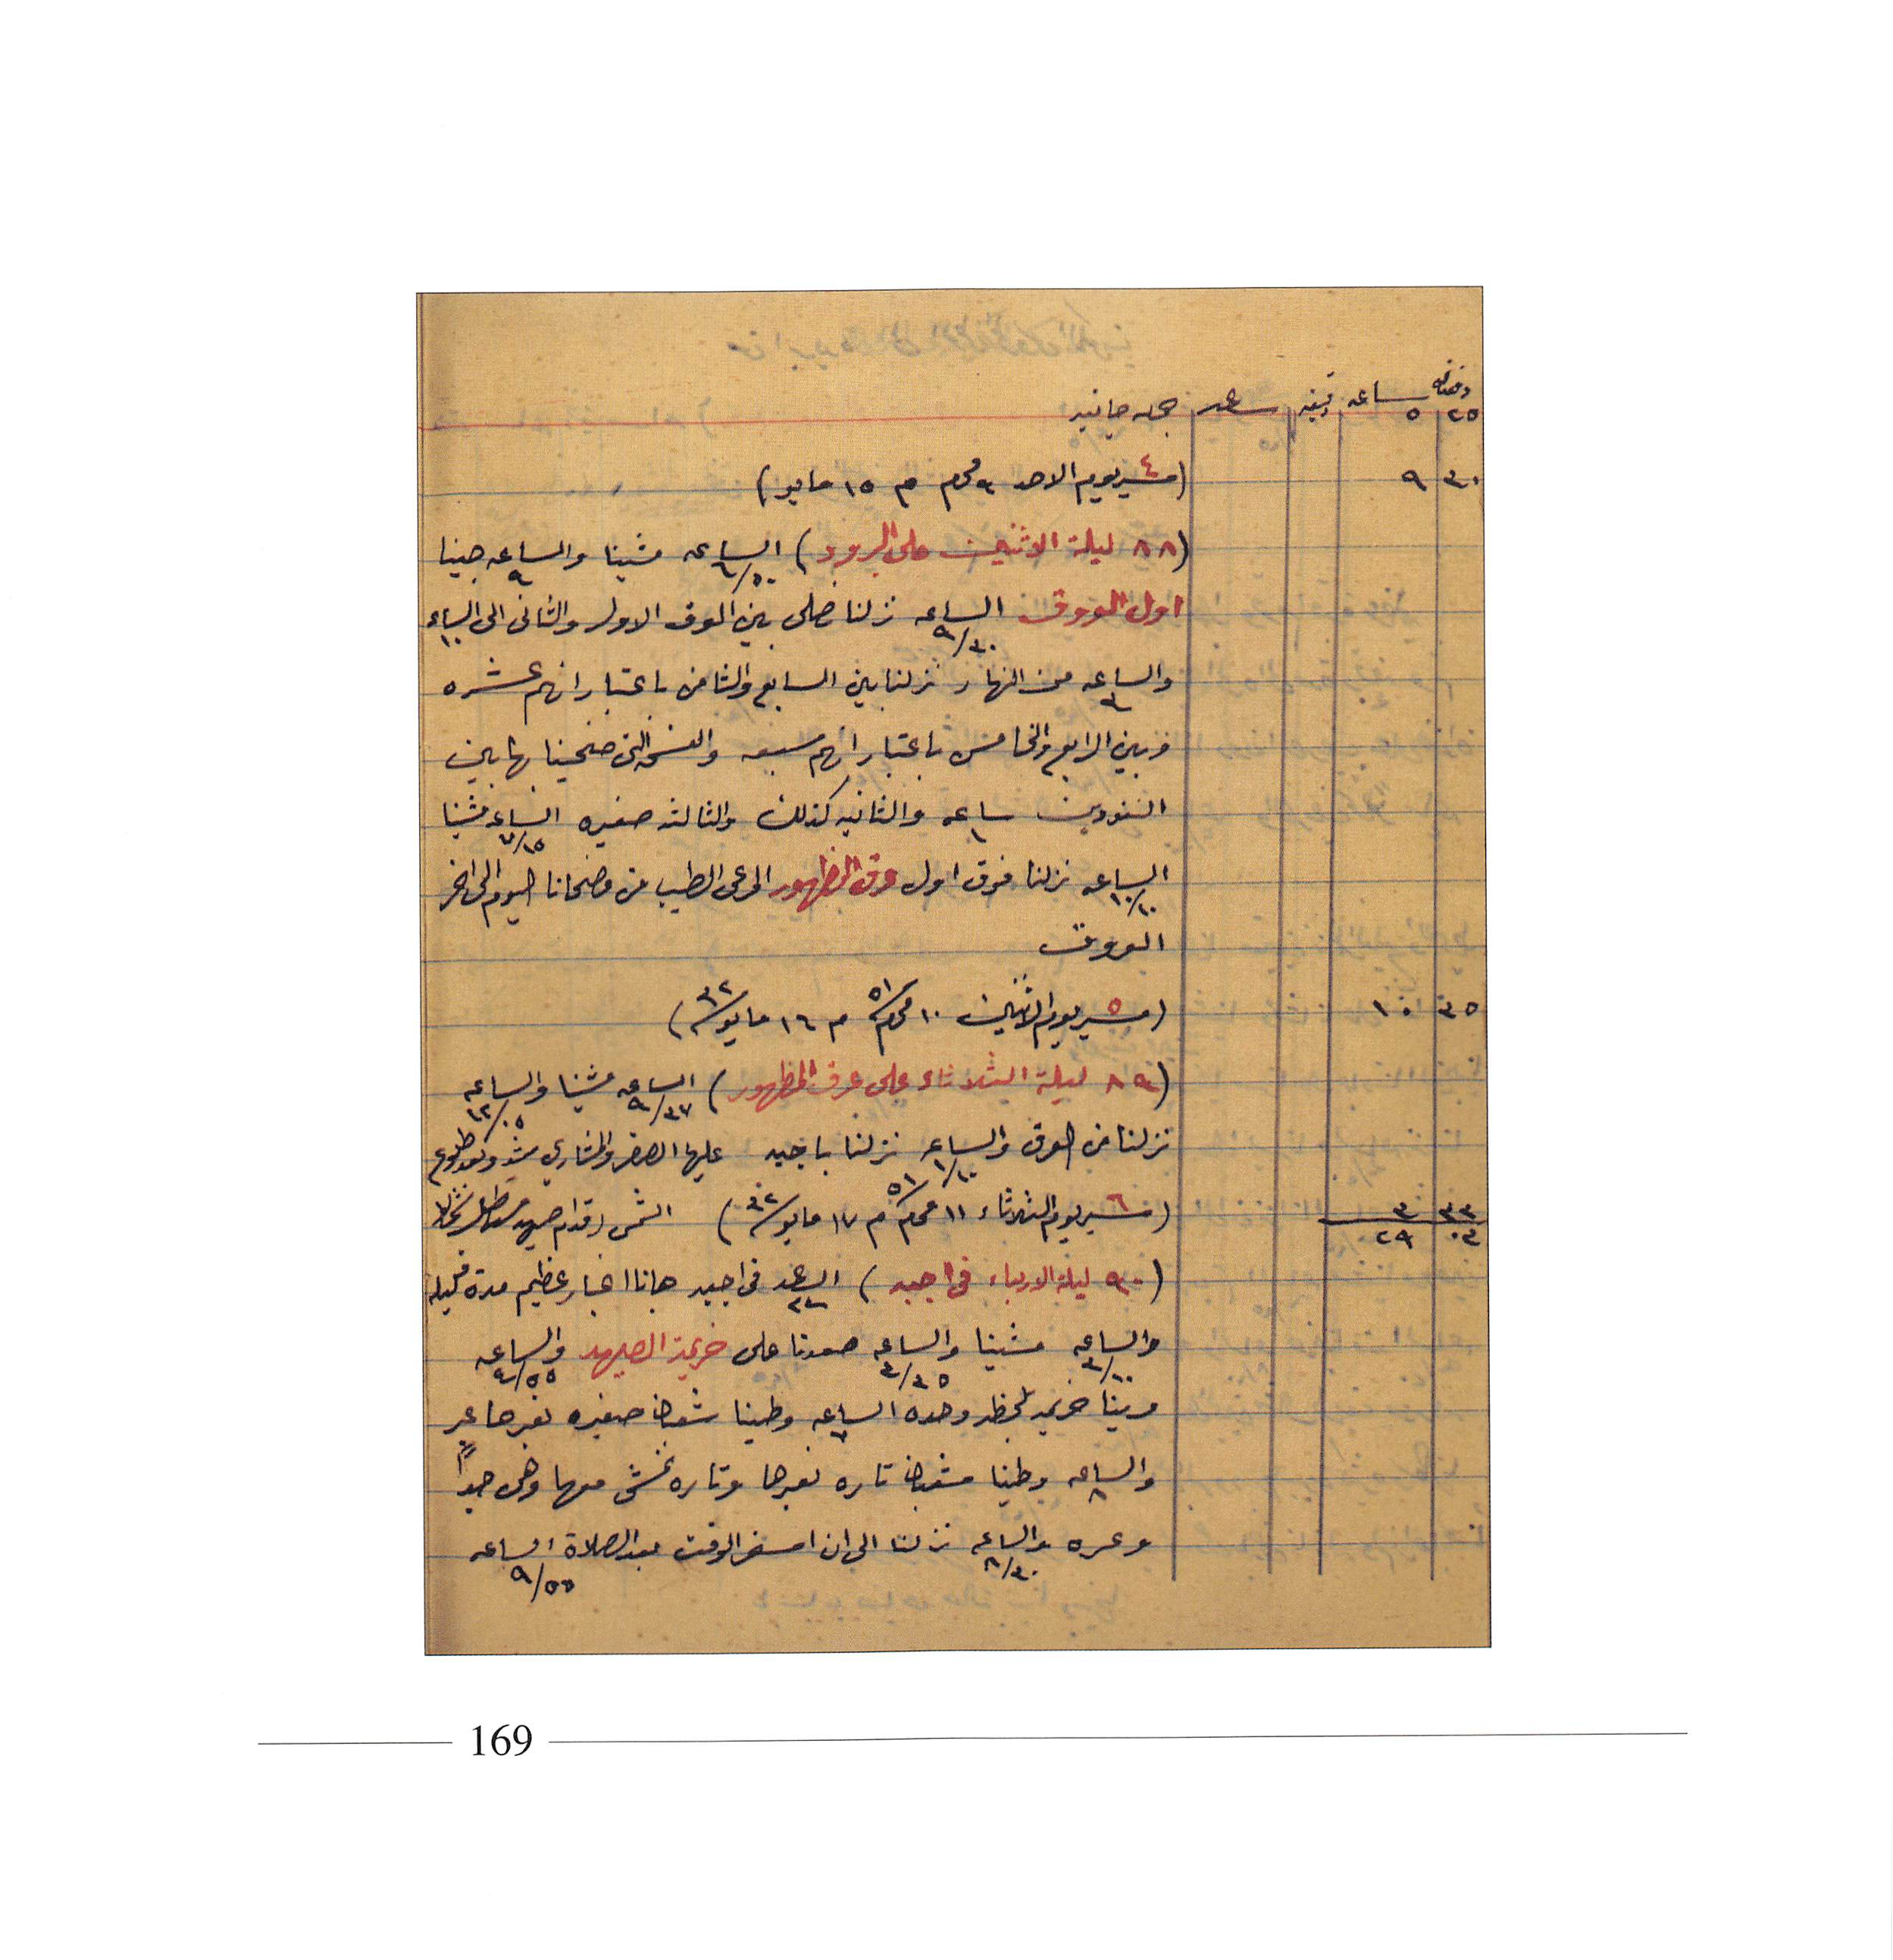 دقيقه ساعه دقيقه ساعه جمله جانيه
٢٥ ٥
٣٠ ٩ (٤ مسير يوم الاحد ٩ محرم م ١٥ مايو)
(٨٨ ليلة الاثنين على البرود) الساعه ٦/٥٠ مشينا والساعه ٩ جينا
اول العروق الساعه ٩/٣٠ نزلنا نصلى بين العرق الاول والثانى الى الساعه ١٠
والساعه ٣ من النهار نزلنا بين السابع والثامن باعتبار انهم عشره
وبين الرابع والخامس باعتبار انهم سبعه والفسحه التى ضحينا بها بين
النفودين ساعه ١ والثانيه كذلك والثالثه صغيره الساعه ٧/١٥ مشينا
الساعه ١٠/٢٠ نزلنا فوق اول عرق المظهور المرعى الطيب من مضحانا اليوم الى اخر
العروق
٣٥ ١٠ (٥ مسير يوم الاثنين ١٠ محرم ٥١ م ١٦ مايو ٣٢)
(٨٩ ليلة الثلاثاء على عرق المظهور) الساعه ٩/٣٧ مشينا والساعه ١٢/٠٥
نزلنا من العرق والساعه ١/١٠ نزلنا باجبه عليها الصفر والمشارى وبعد طلوع
٣٣ ٣ (٦ مسير يوم الثلاثاء ١١ محرم ٥١ م ١٧ مايو ٣٢) الشمس اقدام صيهد
٠٣ ٢٩
(٩٠ ليلة الاربعاء فى اجبه) فى اجبه جانا غبار عظيم مدة قليله
والساعه ٣/١٠ مشينا والساعه ٣/٣٥ صعدنا على خريمة الصيهد والساعه ٤/٥٥
وحده الساعه ٧ وطينا صغيره نعبرها عبر
والساعه ٨ وطينا تاره نعبرها وتاره نمشى معها وهى جيداً
وعره والساعه ٨/٣٠ نزلنا الى ان اسفر الوقت بعد الصلاة الساعه ٩/٥٥
169